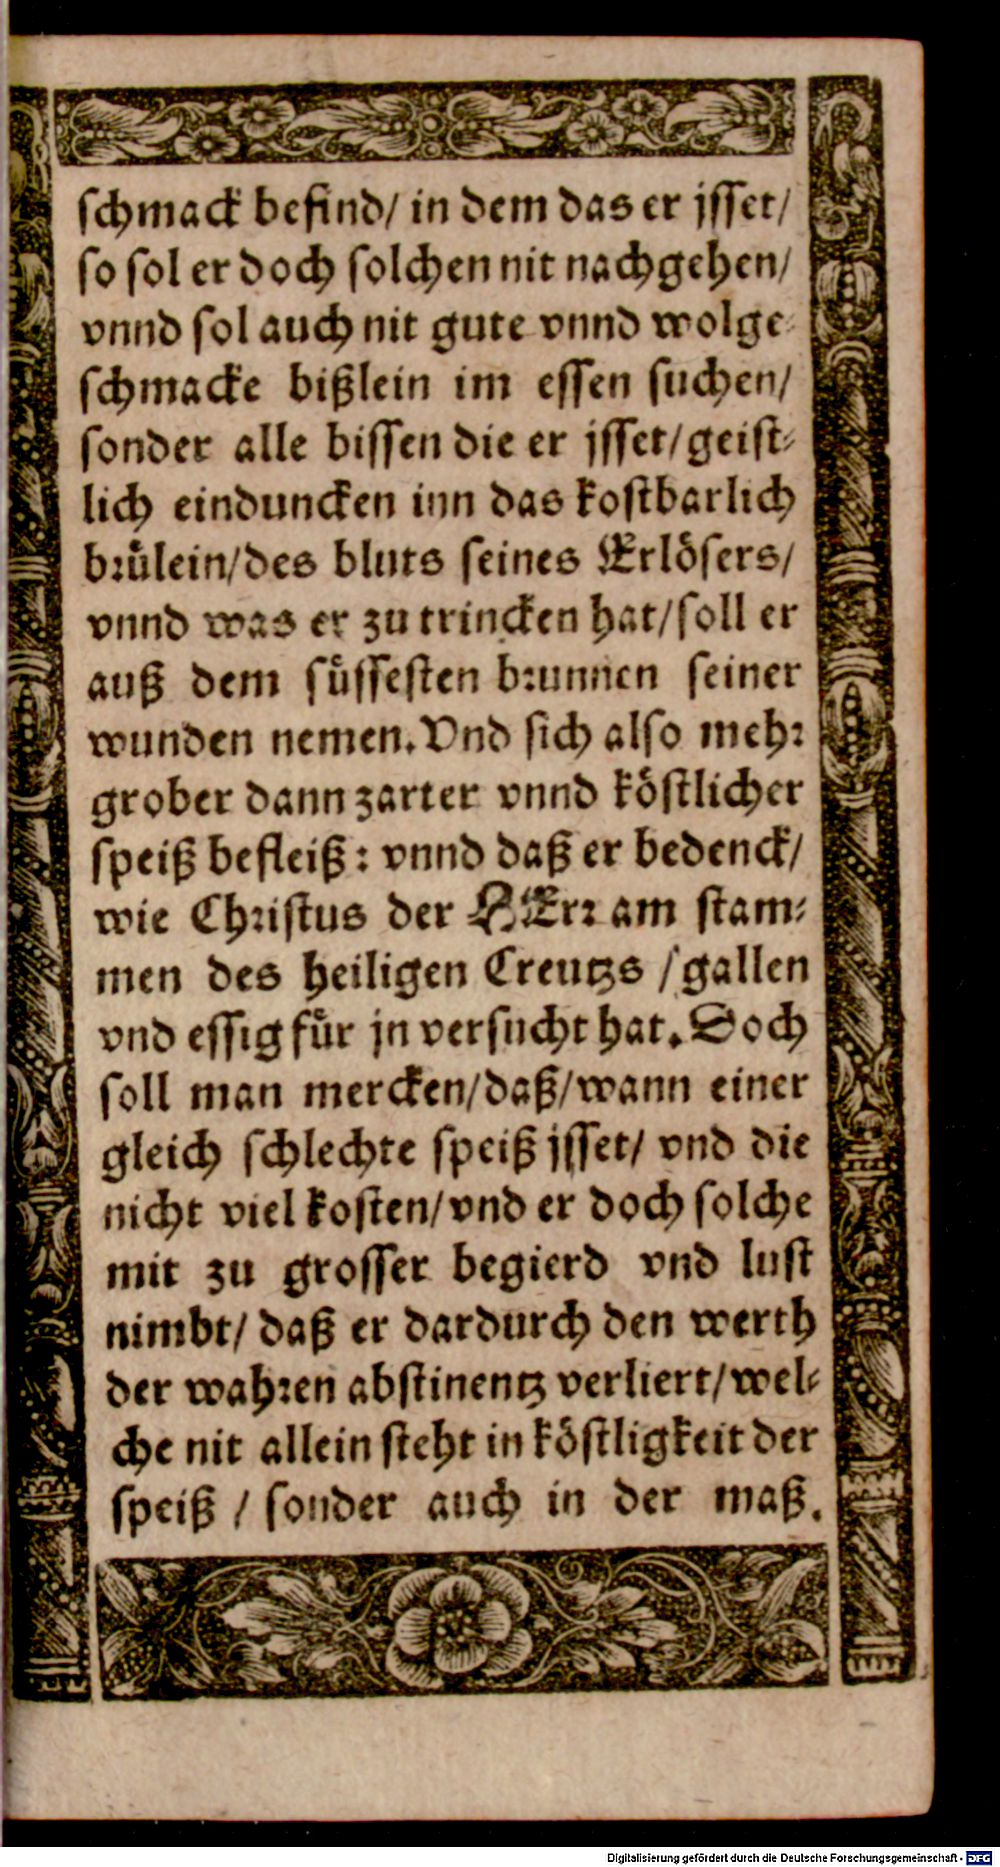 schmack befind/ in dem das er jsset/
so sol er doch solchen nit nachgehen/
vnnd sol auch nit gute vnnd wolge⸗
schmacke bißlein im essen suchen/
sonder alle bissen die er jsset/ geist⸗
lich einduncken inn das kostbarlich
bruͤlein/ des bluts seines Erlösers/
vnnd was er zu trincken hat/ soll er
auß dem suͤssesten brunnen seiner
wunden nemen. Vnd sich also mehr
grober dann zarter vnnd köstlicher
speiß befleiß: vnnd daß er bedenck/
wie Christus der HErr am stam⸗
men des heiligen Creutzs / gallen
vnd essig fuͤr jn versucht hat. Doch
soll man mercken/ daß/ wann einer
gleich schlechte speiß jsset/ vnd die
nicht viel kosten/ vnd er doch solche
mit zu grosser begierd vnd lust
nimbt/ daß er dardurch den werth
der wahren abstinentz verliert/ wel⸗
che nit allein steht in köstligkeit der
speiß / sonder auch in der maß.
Digitalisierung gefördert durch die Deutsche Forschungsgemeinschaft - DFG